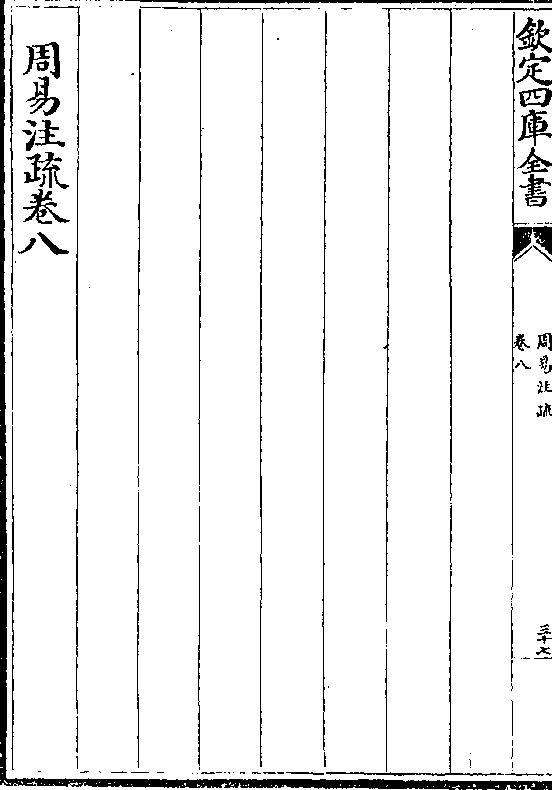 欽定四庫全書
周易注疏
卷八
三十七
周易注疏卷八